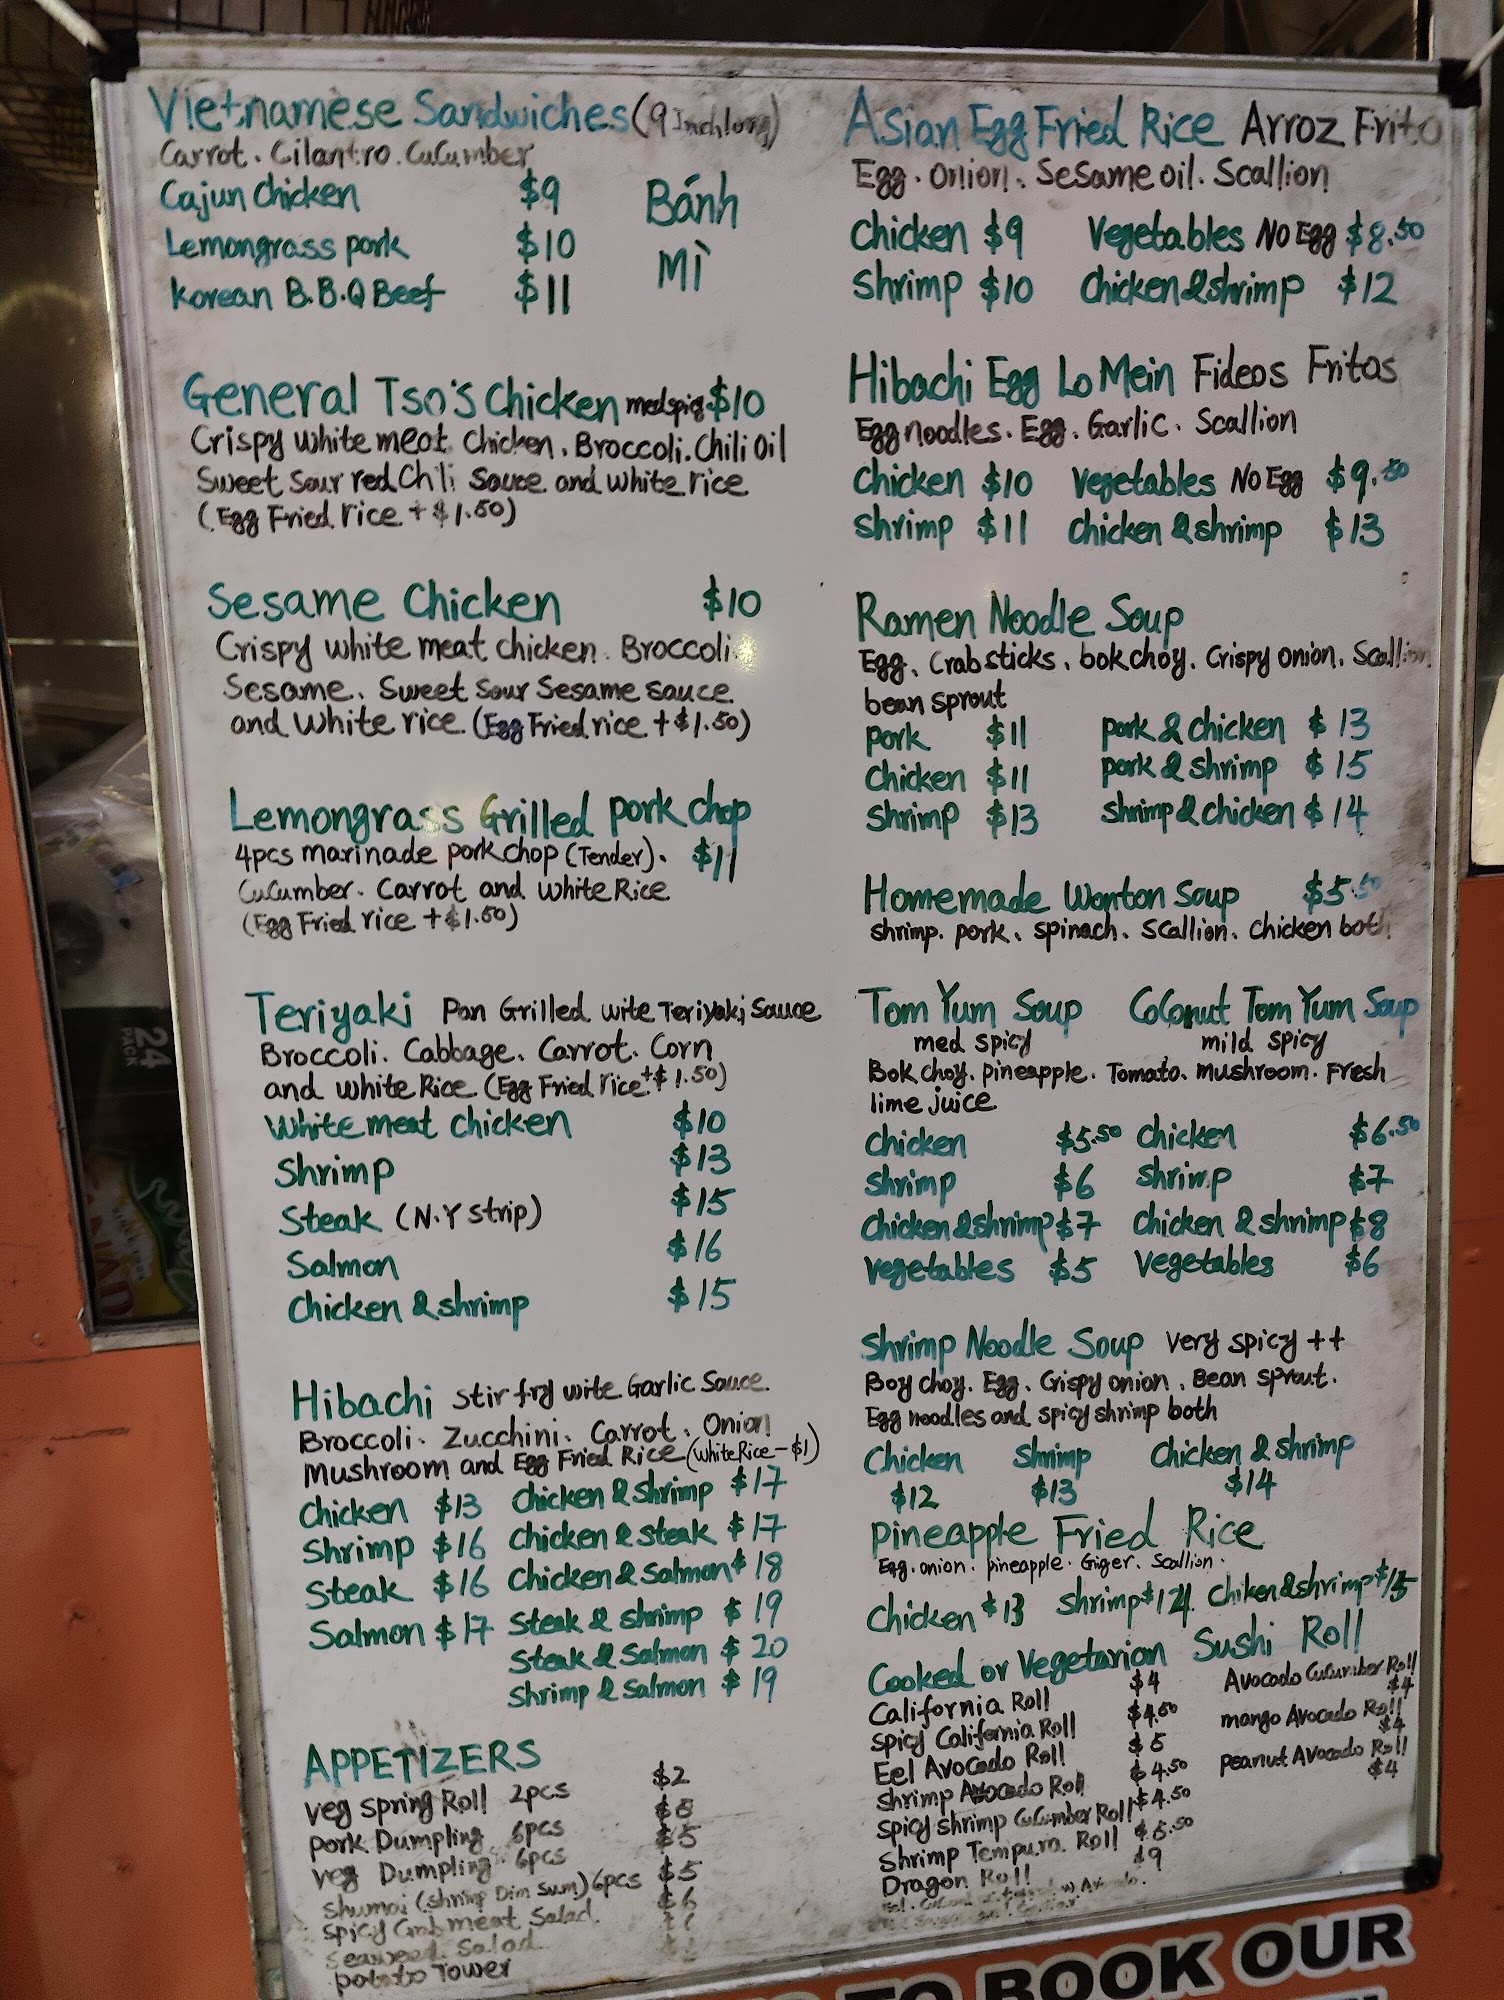 Vietnamese Sandwiches (9 Inch long)
Carrot. Cilantro. Cucumber
Cajun Chicken $9
Lemongrass pork $10
Korean B.B.Q Beef $11
Bánh
Mì
General Tso's Chicken $10
Crispy white meat Chicken. Broccoli. Chili Oil
Sweet Sour red Chili Sauce and white rice
(Egg Fried rice +$1.50)
Sesame Chicken $10
Crispy white meat chicken. Broccoli
Sesame. Sweet Sour Sesame sauce
and White rice (Egg Fried rice +$1.50)
Lemongrass Grilled pork chop
4pcs marinade pork chop (Tender). $11
Cucumber. Carrot and white Rice
(Egg Fried rice +$1.50)
Teriyaki Pan Grilled wite Teriyaki Sauce
Broccoli. Cabbage. Carrot. Corn
and white Rice (Egg Fried rice +$1.50)
White meat chicken $10
Shrimp $13
Steak (N.Y strip) $15
Salmon $16
Chicken & shrimp $15
Hibachi stir fry wite Garlic Sauce.
Broccoli. Zucchini. Carrot. Onion
Mushroom and Egg Fried Rice (white Rice -$1)
Chicken $13 Chicken & Shrimp $17
Shrimp $16 Chicken & steak $17
Steak $16 Chicken & Salmon $18
Salmon $17 Steak & shrimp $19
Steak & Salmon $20
Shrimp & Salmon $19
APPETIZERS
Veg spring Roll 2pcs $2
pork Dumpling 6pcs $5
veg Dumpling 6pcs $5
Shumai (shrimp Dim Sum) 6pcs $5
Spicy Crab meat Salad. $6
Seaweed Salad
potato Tower
Asian Egg Fried Rice Arroz Frito
Egg. Onion. Sesame oil. Scallion
Chicken $9 Vegetables No Egg $8.50
Shrimp $10 Chicken & shrimp $12
Hibachi Egg Lo Mein Fideos Fritos
Egg noodles. Egg. Garlic. Scallion
Chicken $10 Vegetables No Egg $9.50
Shrimp $11 Chicken & shrimp $13
Ramen Noodle Soup
Egg. Crab sticks. bok choy. Crispy onion. Scallion
bean sprout
pork $11 pork & chicken $13
Chicken $11 pork & shrimp $15
Shrimp $13 shrimp & chicken $14
Homemade Wonton Soup $5.50
shrimp. pork. spinach. Scallion. Chicken both
Tom Yum Soup Coconut Tom Yum Soup
med spicy mild spicy
Bok choy. pineapple. Tomato. mushroom. Fresh
lime juice
Chicken $5.50 Chicken $6.50
Shrimp $6 Shrimp $7
Chicken & shrimp $7 Chicken & shrimp $8
Vegetables $5 Vegetables $6
Shrimp Noodle Soup very spicy ++
Boy choy. Egg. Crispy onion. Bean sprout.
Egg noodles and spicy shrimp both
Chicken Shrimp Chicken & shrimp
$12 $13 $14
Pineapple Fried Rice
Egg. onion. pineapple. Giger. Scallion.
Chicken $13 Shrimp $14 Chiken & shrimp $15
Cooked or Vegetarian Sushi Roll
California Roll $4
Spicy California Roll $4.50
Eel Avocado Roll $5
Shrimp Avocado Roll $4.50
Spicy shrimp Cucumber Roll $4.50
Shrimp Tempura Roll $5.50
Dragon Roll $9
Avocado Cucumber Roll
$4
mango Avocado Roll
$4
peanut Avocado Roll
$4
24
PACK
TO BOOK OUR